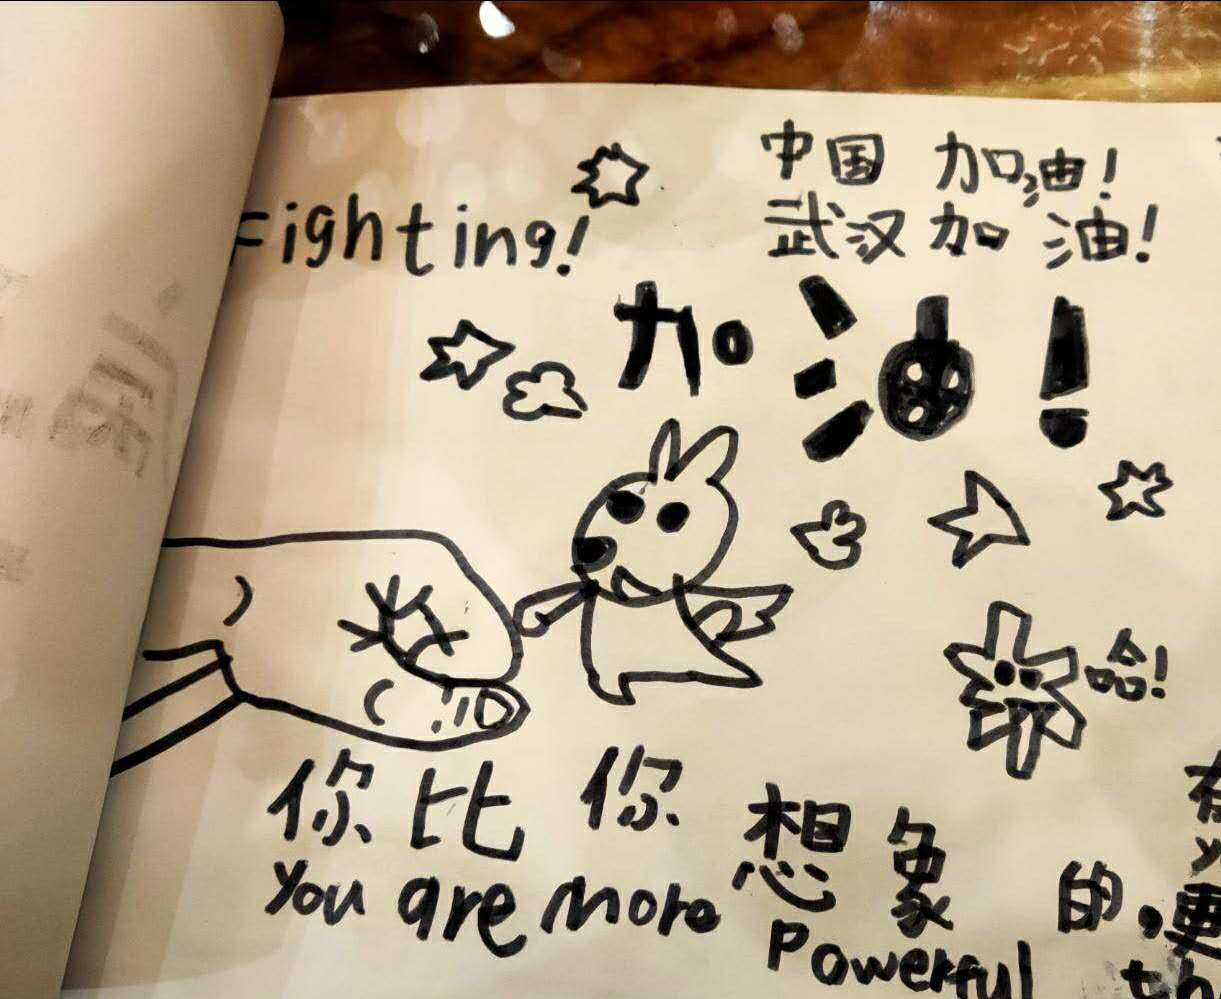 中国 加油!
Fighting!
武汉加油!
加油!
哈!
你比你想象的,更
You are more Powerful